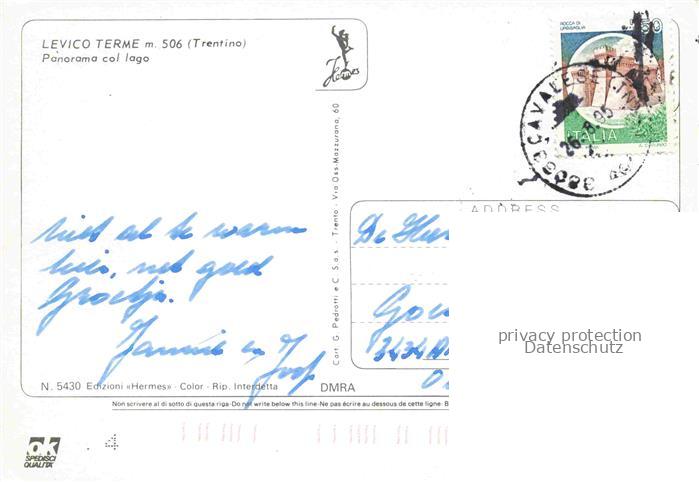 LEVICO TERME m. 506 (Trentino)
Panorama col lago
Hermes
ROCCA DI URBISAGLIA
50
ITALIA
CAVALESE
26.8.95
Cart. G. Pedrotti e C. S.a.s. - Trento - Via Oss-Mazzurana, 60
ADDRESS
niet al te warm
hier, net goed
Groetjes.
Jannie en Joop
De Heer
3434A
N. 5430 Edizioni «Hermes» - Color - Rip. Interdetta
DMRA
Non scrivere al di sotto di questa riga-Do not write below this line-Ne pas écrire au dessous de cette ligne-B
privacy protection
Datenschutz
ok
SPEDISCI
QUALITA'
4